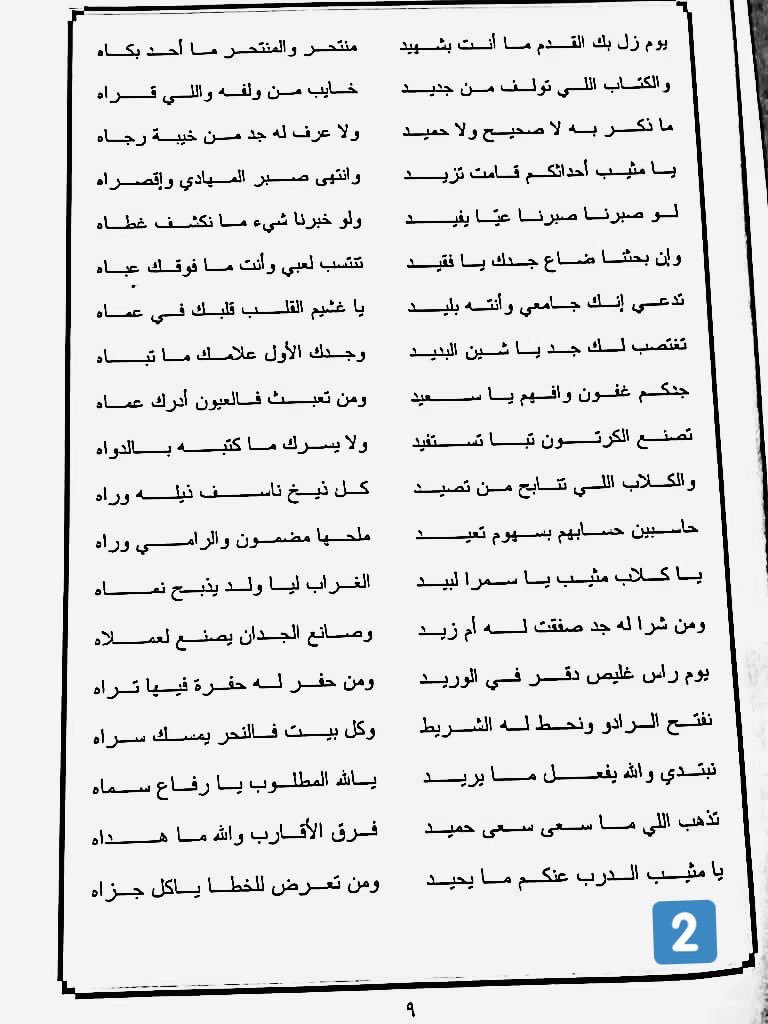 يوم زل بك القدم ما أنت بشهيد منتحر والمنتحر ما أحد بكاه
والكتاب اللي تولف من جديد خايب من ولفه واللي قراه
ما ذكر به لا صحيح ولا حميد ولا عرف له جد من خيبة رجاه
يا مثيب أحداثكم قامت تزيد وانتهى صبر المهادي وإقصراه
لو صبرنا صبرنا عيّا يفيد ولو خبرنا شيء ما نكشف غطاه
وإن بحثنا ضاع جدك يا فقيد تنتسب لعبي وأنت ما فوقك عباه
تدعي إنك جامعي وأنته بليد يا غشيم القلب قلبك في عماه
تغتصب لك جد يا شين البديد وجدك الأول علامك ما تباه
جدكم غفون وافهم يا سعيد ومن تعبث فالعيون أدرك عماه
تصنع الكرتون تبا تستفيد ولا يسرك ما كتبه بالدواه
والكلاب اللي تتابح من تصيد كل ذيخ ناسف نيله وراه
حاسبين حسابهم بسهوم تعيد ملحها مضمون والرامي وراه
يا كلاب مثيب يا سمرا لبيد الغراب ليا ولد يذبح نعاه
ومن شرا له جد صفقت له أم زيد وصانع الجدان يصنع لعملاه
يوم راس غليص دقر في الوريد ومن حفر له حفرة فيها تراه
نفتح الرادو ونحط له الشريط وكل بيت فالنحر يمسك سراه
نبتدي والله يفعل ما يريد يالله المطلوب يا رفاع سماه
تذهب اللي ما سعى سعى حميد فرق الأقارب والله ما هداه
يا مثيب الدرب عنكم ما يحيد ومن تعرض للخطا ياكل جزاه
2
٩